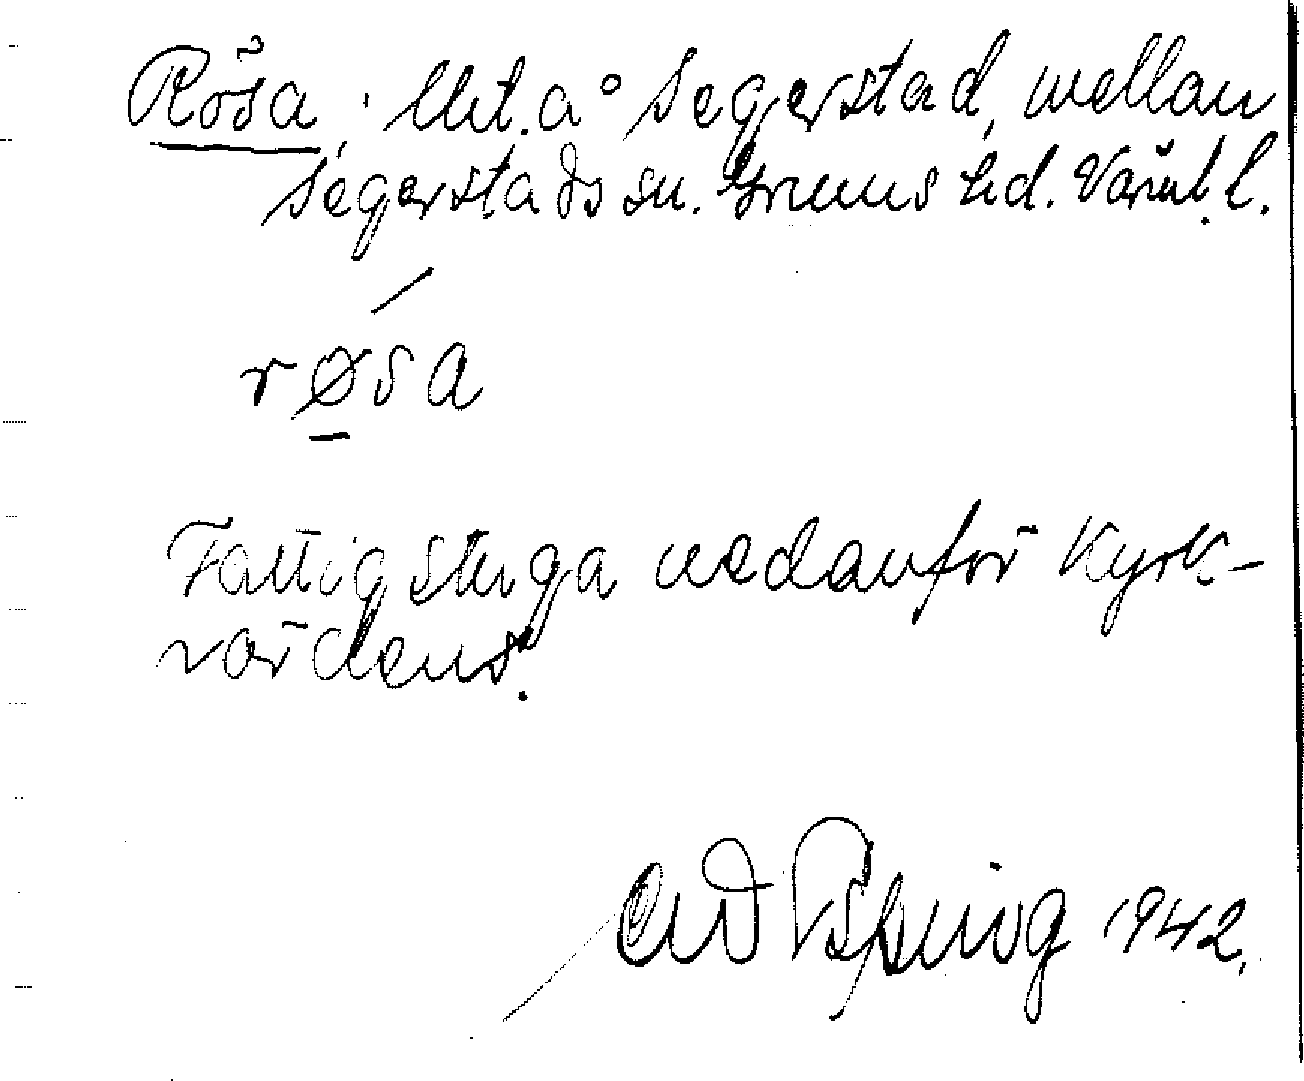 Rösa, Utt. å Segerstad, mellan
Segerstads sn. Grums hd. Värml. l.
røsa
Fattigstuga nedanför Kyrk-
värdens.
1942.